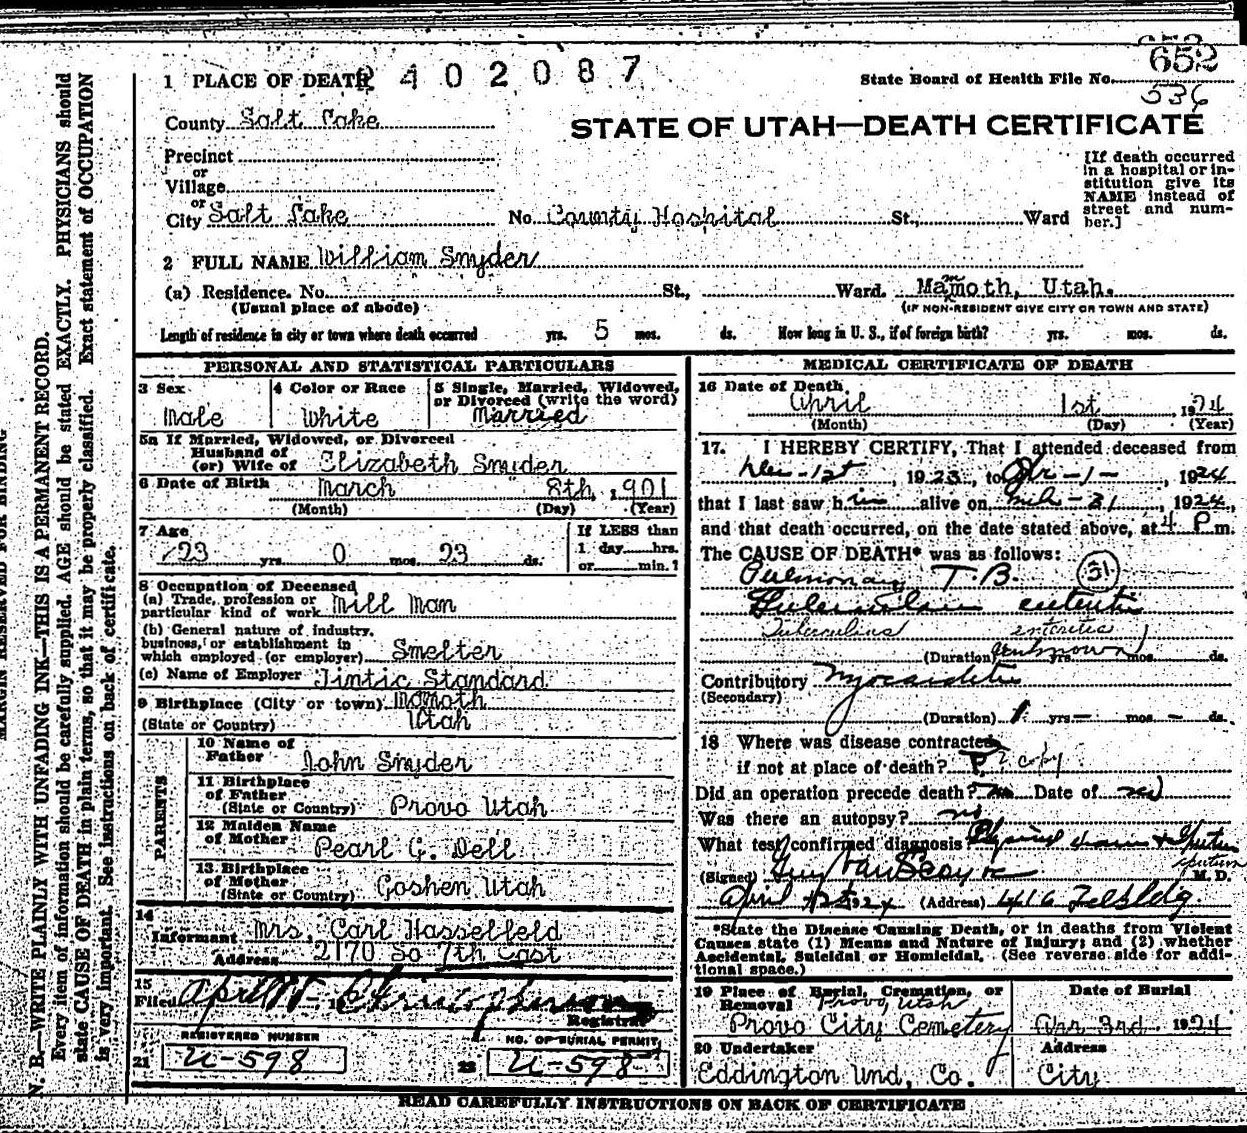 652
1 PLACE OF DEATH 2 4 0 2 0 8 7
State Board of Health File No. 652
536
County Salt Lake
STATE OF UTAH—DEATH CERTIFICATE
Precinct
or
Village
or
City Salt Lake No. County Hospital St., Ward
[If death occurred
in a hospital or in-
stitution give its
NAME instead of
street and num-
ber.]
2 FULL NAME William Snyder
(a) Residence. No. St., Ward. Mammoth, Utah.
(Usual place of abode)
(IF NON-RESIDENT GIVE CITY OR TOWN AND STATE)
Length of residence in city or town where death occurred yrs. 5 mos. ds. How long in U. S., if of foreign birth? yrs. mos. ds.
PERSONAL AND STATISTICAL PARTICULARS
3 Sex
Male
4 Color or Race
White
5 Single, Married, Widowed,
or Divorced (write the word)
Married
5a If Married, Widowed, or Divorced
Husband of
(or) Wife of Elizabeth Snyder
6 Date of Birth March 8th, 1901
(Month) (Day) (Year)
7 Age
23 yrs. 0 mos. 23 ds.
If LESS than
1 day hrs.
or min.?
8 Occupation of Deceased
(a) Trade, profession or
particular kind of work Mill Man
(b) General nature of industry,
business, or establishment in
which employed (or employer) Smelter
(c) Name of Employer Tintic Standard
9 Birthplace (City or town) Mamoth
(State or Country) Utah
PARENTS
10 Name of
Father John Snyder
11 Birthplace
of Father
(State or Country) Provo Utah
12 Maiden Name
of Mother Pearl G. Dell
13. Birthplace
of Mother
(State or Country) Goshen Utah
14
Informant Mrs. Carl Hasselfeld
Address 2170 So 7th East
15
Filed April
Registrar
REGISTERED NUMBER
21 U-598
NO. OF BURIAL PERMIT
22 U-598
MEDICAL CERTIFICATE OF DEATH
16 Date of Death
April 1st, 1924
(Month) (Day) (Year)
17. I HEREBY CERTIFY, That I attended deceased from
Nov-1st, 1923, to Apr-1-, 1924
that I last saw him alive on Mch-31, 1924,
and that death occurred, on the date stated above, at 4 P m.
The CAUSE OF DEATH* was as follows:
Pulmonary T.B. 31
Tuberculous enteritis
Tuberculous enteritis
(Duration) Unknown yrs. mos. ds.
Contributory Myocarditis
(Secondary)
(Duration) 1 yrs. — mos. — ds.
18 Where was disease contracted
if not at place of death? ? copy
Did an operation precede death? No Date of
Was there an autopsy? no
What test confirmed diagnosis? Physical exam & Sputum
sputum
(Signed) Guy Van Scoyoc M. D.
April 1924 (Address) 416 Tel Bldg.
*State the Disease Causing Death, or in deaths from Violent
Causes state (1) Means and Nature of Injury; and (2) whether
Accidental, Suicidal or Homicidal. (See reverse side for addi-
tional space.)
19 Place of Burial, Cremation, or
Removal Provo, Utah
Provo City Cemetery
Date of Burial
Apr 3rd 1924
20 Undertaker
Eddington Und, Co.
Address
City
READ CAREFULLY INSTRUCTIONS ON BACK OF CERTIFICATE
MARGIN RESERVED FOR BINDING
N. B.—WRITE PLAINLY WITH UNFADING INK—THIS IS A PERMANENT RECORD.
Every item of information should be carefully supplied. AGE should be stated EXACTLY. PHYSICIANS should
state CAUSE OF DEATH in plain terms, so that it may be properly classified. Exact statement of OCCUPATION
is very important. See instructions on back of certificate.